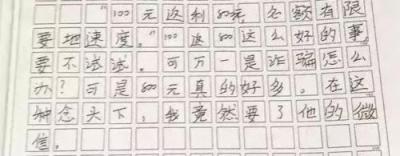 “100元返利800元，名额有限
要地速度。”100返800这么好的事，
要不试试。可万一是诈骗怎么
办？可是800元真的好多。在这
种念头下，我竟然要了他的微
信。